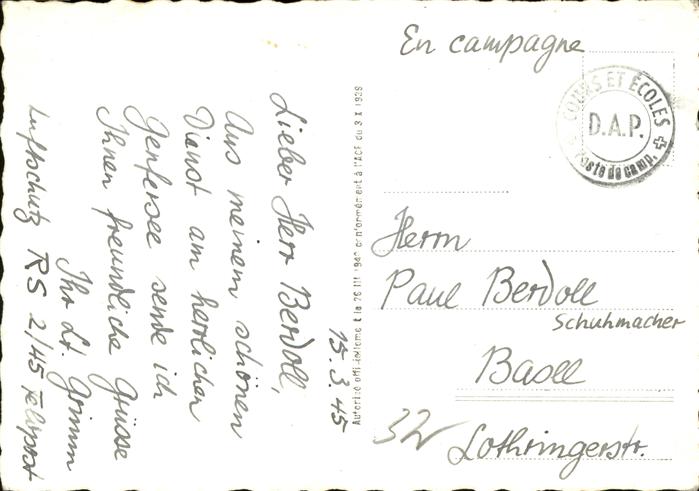 15.3.45
Lieber Herr Berdoll,
Aus meinem schönen
Dienst am herrlichen
Genfersee sende ich
Ihnen freundliche Grüsse
Ihr Lt. Grimm
Luftschutz RS 2/45 Feldpost
Autorisé officiellement le 26 III 1940 conformément à l'ACF du 3 X 1939
En campagne
COURS ET ÉCOLES
D.A.P.
Poste de camp.
Herrn
Paul Berdoll
Schuhmacher
Basel
32 Lothringerstr.